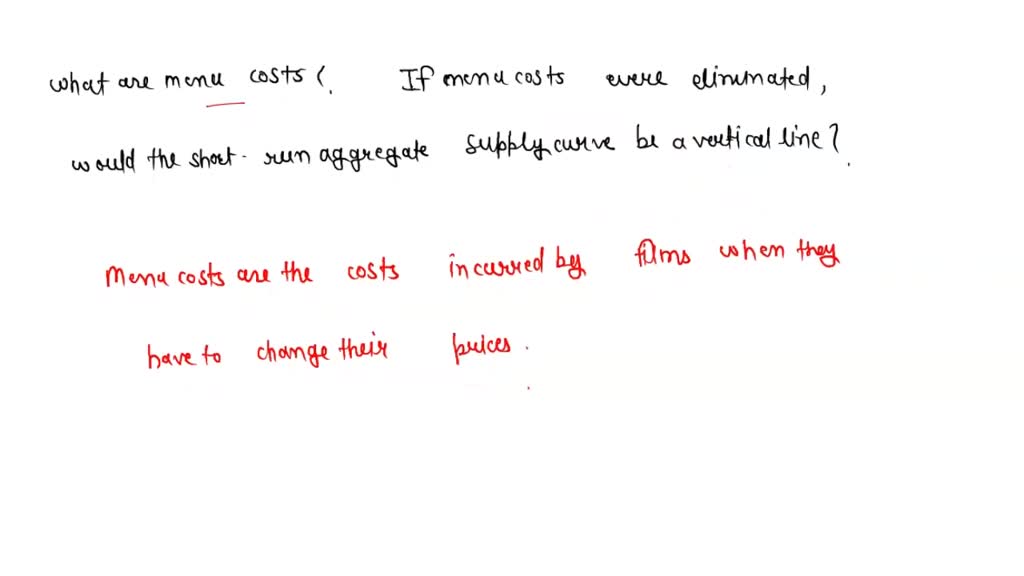 what are menu costs? If menu costs were eliminated,
would the short-run aggregate supply curve be a vertical line?
Menu costs are the costs incurred by films when they
have to change their prices.